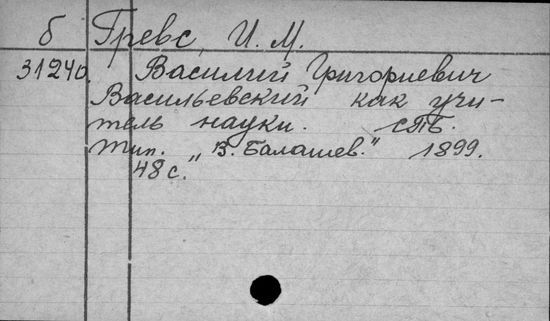 б Гревс, И. М.
31240. Василий Григориевич
Васильевский как учи-
тель науки. СПБ.
тип. "В. Балашев." 1899.
48 с.